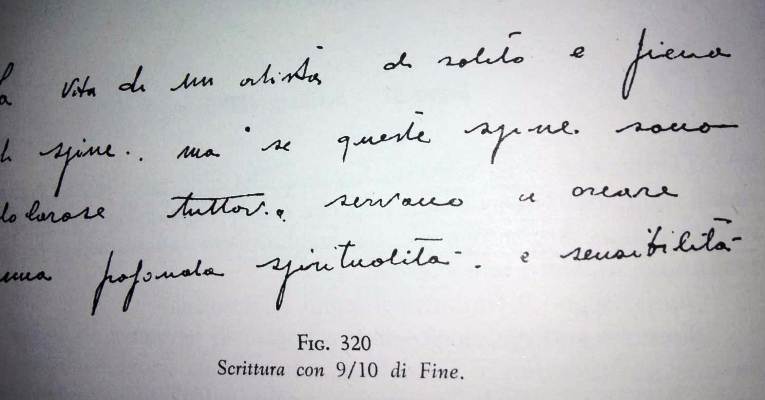 la vita di un artista di solito e piena
di spine.. ma se queste spine sono
dolorose tuttavi.. servano a creare
una profonda spiritualità. e sensibilità
FIG. 320
Scrittura con 9/10 di Fine.